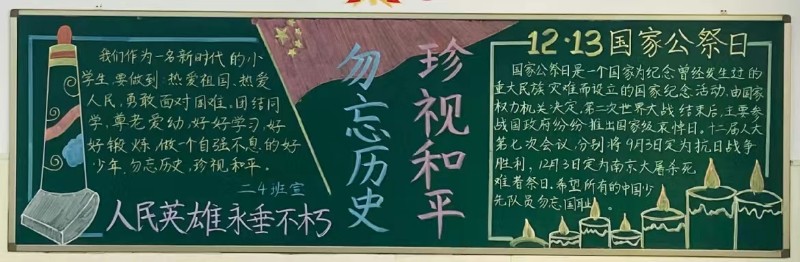 我们作为一名新时代的小
学生,要做到:热爱祖国、热爱
人民,勇敢面对困难、团结同
学,尊老爱幼,好好学习,好
好锻炼,做个自强不息的好
少年,勿忘历史,珍视和平。
二4班宣
人民英雄永垂不朽
勿忘历史
珍视和平
12·13国家公祭日
国家公祭日是一个国家为纪念曾经发生过的
重大民族灾难而设立的国家纪念活动,由国家
权力机关决定,第二次世界大战结束后,主要参
战国政府纷纷推出国家级哀悼日,十二届人大
第七次会议,分别将9月3日定为抗日战争
胜利,12月3日定为南京大屠杀死
难者祭日,希望所有的中国少
先队员勿忘国耻。